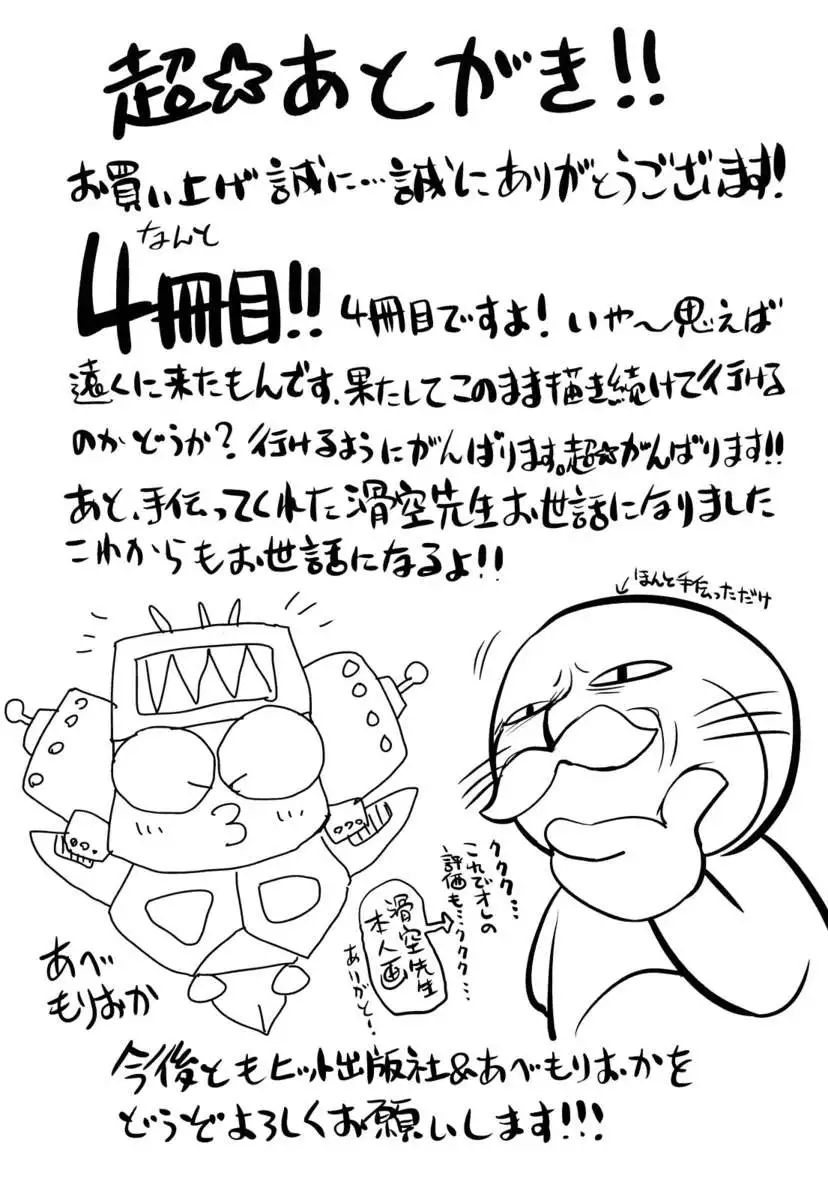 超☆あとがき!!
お買い上げ誠に…誠にありがとうございます!
なんと
4冊目!! 4冊目ですよ! いや〜思えば
遠くに来たもんです、果たしてこのまま描き続けて行ける
のかどうか? 行けるようにがんばります。超☆がんばります!!
あと、手伝ってくれた滑空先生お世話になりました
これからもお世話になるよ!!
↙ほんと手伝っただけ
ククク…
これでオレの
評価も…ククク…
滑空先生
本人画
ありがと〜!
あべ
もりおか
今後ともヒット出版社&あべもりおかを
どうぞよろしくお願いします!!!